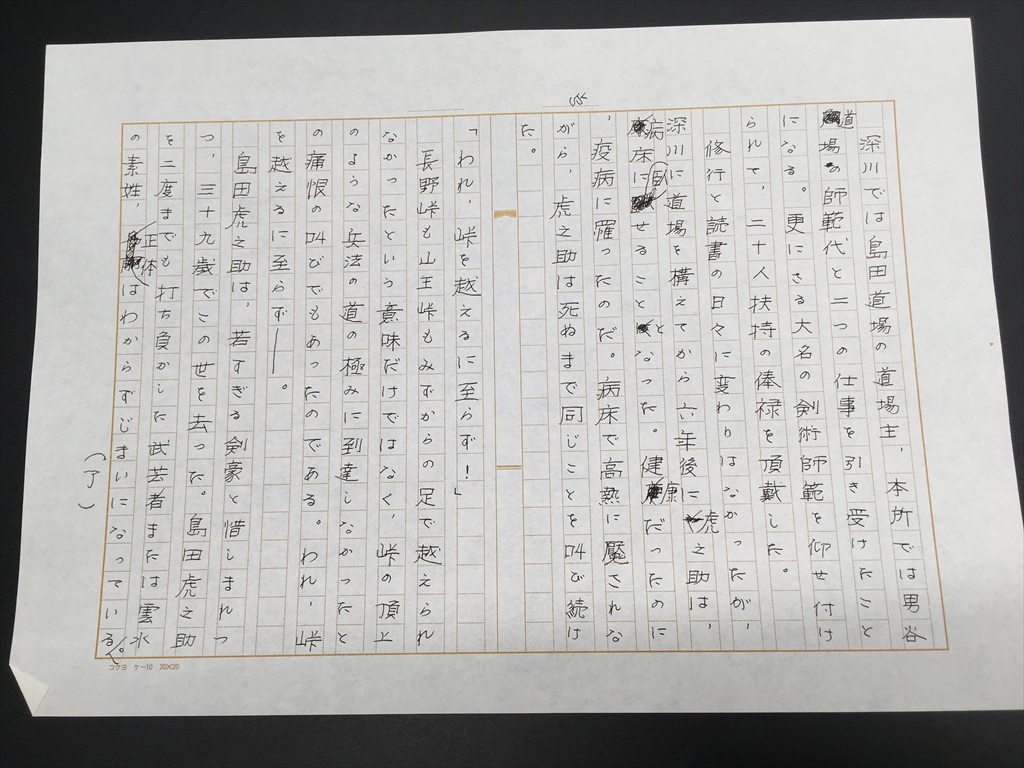 55
深川では島田道場の道場主、本所では男谷
道場の師範代と二つの仕事を引き受けたこと
になる。更にさる大名の剣術師範を仰せ付け
られて、二十人扶持の俸禄を頂戴した。
修行と読書の日々に変わりはなかったが、
深川に道場を構えてから六年後に虎之助は、
病床に臥せることとなった。健康だったのに
、疫病に罹ったのだ。病床で高熱に魘されな
がら、虎之助は死ぬまで同じことを叫び続け
た。
「われ、峠を越えるに至らず!」
長野峠も山王峠もみずからの足で越えられ
なかったという意味だけではなく、峠の頂上
のような兵法の道の極みに到達しなかったと
の痛恨の叫びでもあったのである。われ、峠
を越えるに至らず――。
島田虎之助は、若すぎる剣豪と惜しまれつ
つ、三十九歳でこの世を去った。島田虎之助
を二度までも打ち負かした武芸者または雲水
の素姓、正体はわからずじまいになっている。
(了)
コクヨ ケー10 20×20